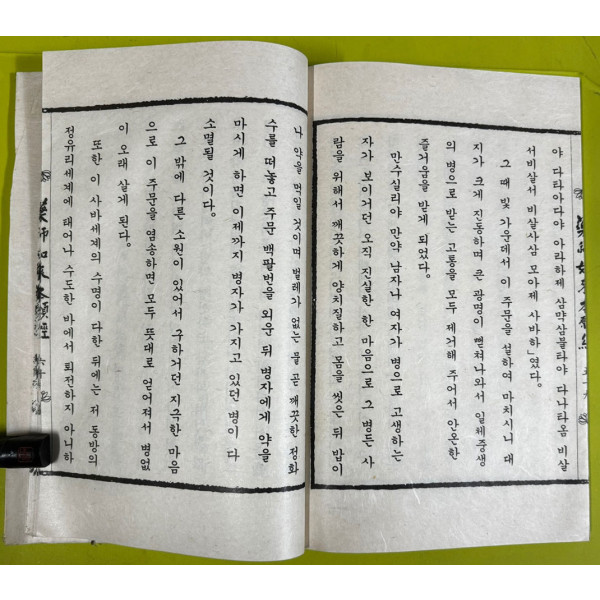 야 다타아다야 아라하제 삼먁삼불타야 다냐타옴 비살
서비살서 비살사삼 모아제 사바하」였다.
그 때 빛 가운데서 이 주문을 설하여 마치시니 대
지가 크게 진동하며 큰 광명이 뻗쳐나와서 일체중생
의 병으로 받는 고통을 모두 제거해 주어서 안온한
즐거움을 받게 되었다.
만수실리야 만약 남자나 여자가 병으로 고생하는
자가 보이거던 오직 진실한 한 마음으로 그 병든 사
람을 위해서 깨끗하게 양치질하고 몸을 씻은 뒤 밥이
나 약을 먹일 것이며 벌레가 없는 물 곧 깨끗한 정화
수를 떠놓고 주문 백팔번을 외운 뒤 병자에게 약을
마시게 하면 이제까지 병자가 가지고 있던 병이 다
소멸될 것이다.
그 밖에 다른 소원이 있어서 구하거던 지극한 마음
으로 이 주문을 염송하면 모두 뜻대로 얻어져서 병없
이 오래 살게 된다.
또한 이 사바세계의 수명이 다한 뒤에는 저 동방의
정유리세계에 태어나 수도한 바에서 퇴전하지 아니하
藥師如來本願經